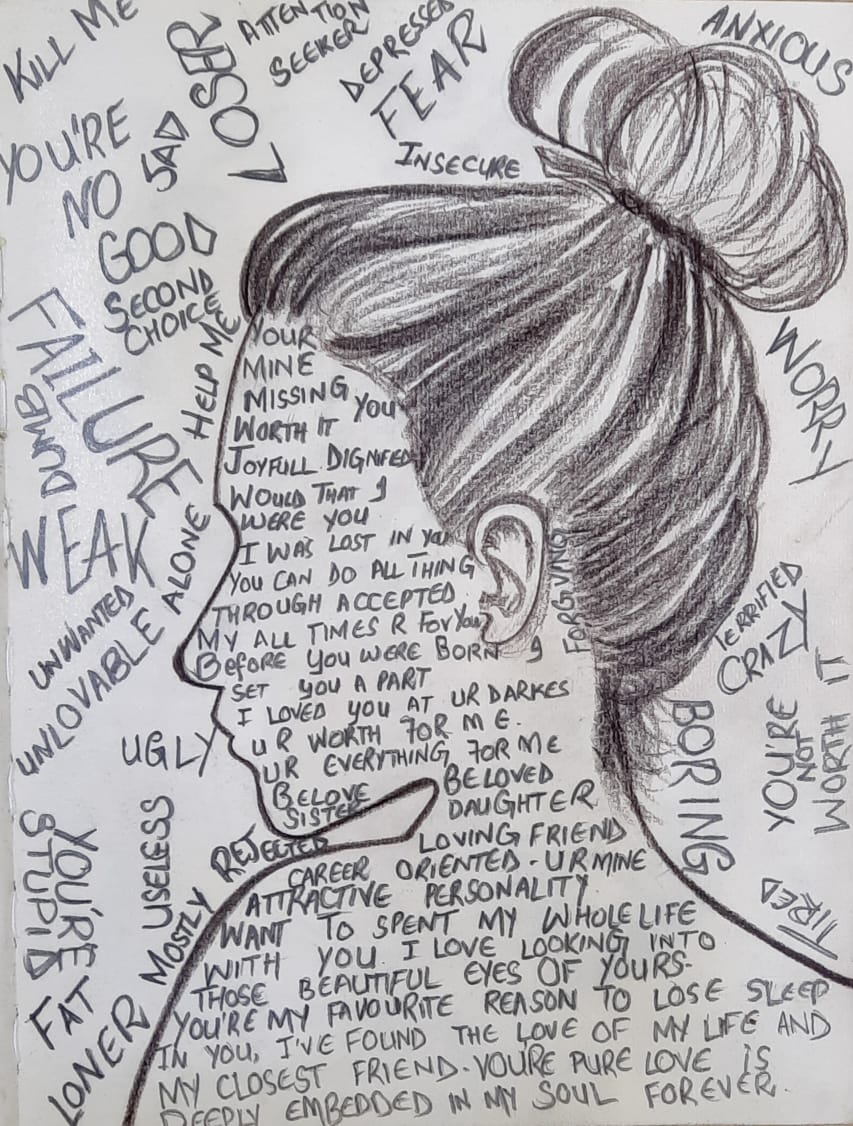 KILL ME
LOSER
ATTENTION
SEEKER
DEPRESSED
FEAR
ANXIOUS
INSECURE
YOU'RE
NO
GOOD
SAD
SECOND
CHOICE
HELP ME
FAILURE
DUMB
WEAK
ALONE
UNWANTED
UNLOVABLE
UGLY
YOU'RE
STUPID
USELESS
MOSTLY REJECTED
FAT
LONER
WORRY
TERRIFIED
CRAZY
BORING
YOU'RE
NOT
WORTH IT
TIRED
FORGIVING
YOUR
MINE
MISSING YOU
WORTH IT
JOYFULL DIGNIFED
WOULD THAT I
WERE YOU
I WAS LOST IN YOU
YOU CAN DO ALL THING
THROUGH ACCEPTED
MY ALL TIMES R FOR YOU
BEFORE YOU WERE BORN I
SET YOU A PART
I LOVED YOU AT UR DARKES
UR WORTH FOR ME.
UR EVERYTHING FOR ME
BELOVE
SISTER
BELOVED
DAUGHTER
LOVING FRIEND
CAREER ORIENTED - UR MINE
ATTRACTIVE PERSONALITY
WANT TO SPENT MY WHOLE LIFE
WITH YOU. I LOVE LOOKING INTO
THOSE BEAUTIFUL EYES OF YOURS-
YOU'RE MY FAVOURITE REASON TO LOSE SLEEP
IN YOU, I'VE FOUND THE LOVE OF MY LIFE AND
MY CLOSEST FRIEND. YOURE PURE LOVE IS
DEEPLY EMBEDDED IN MY SOUL FOREVER.